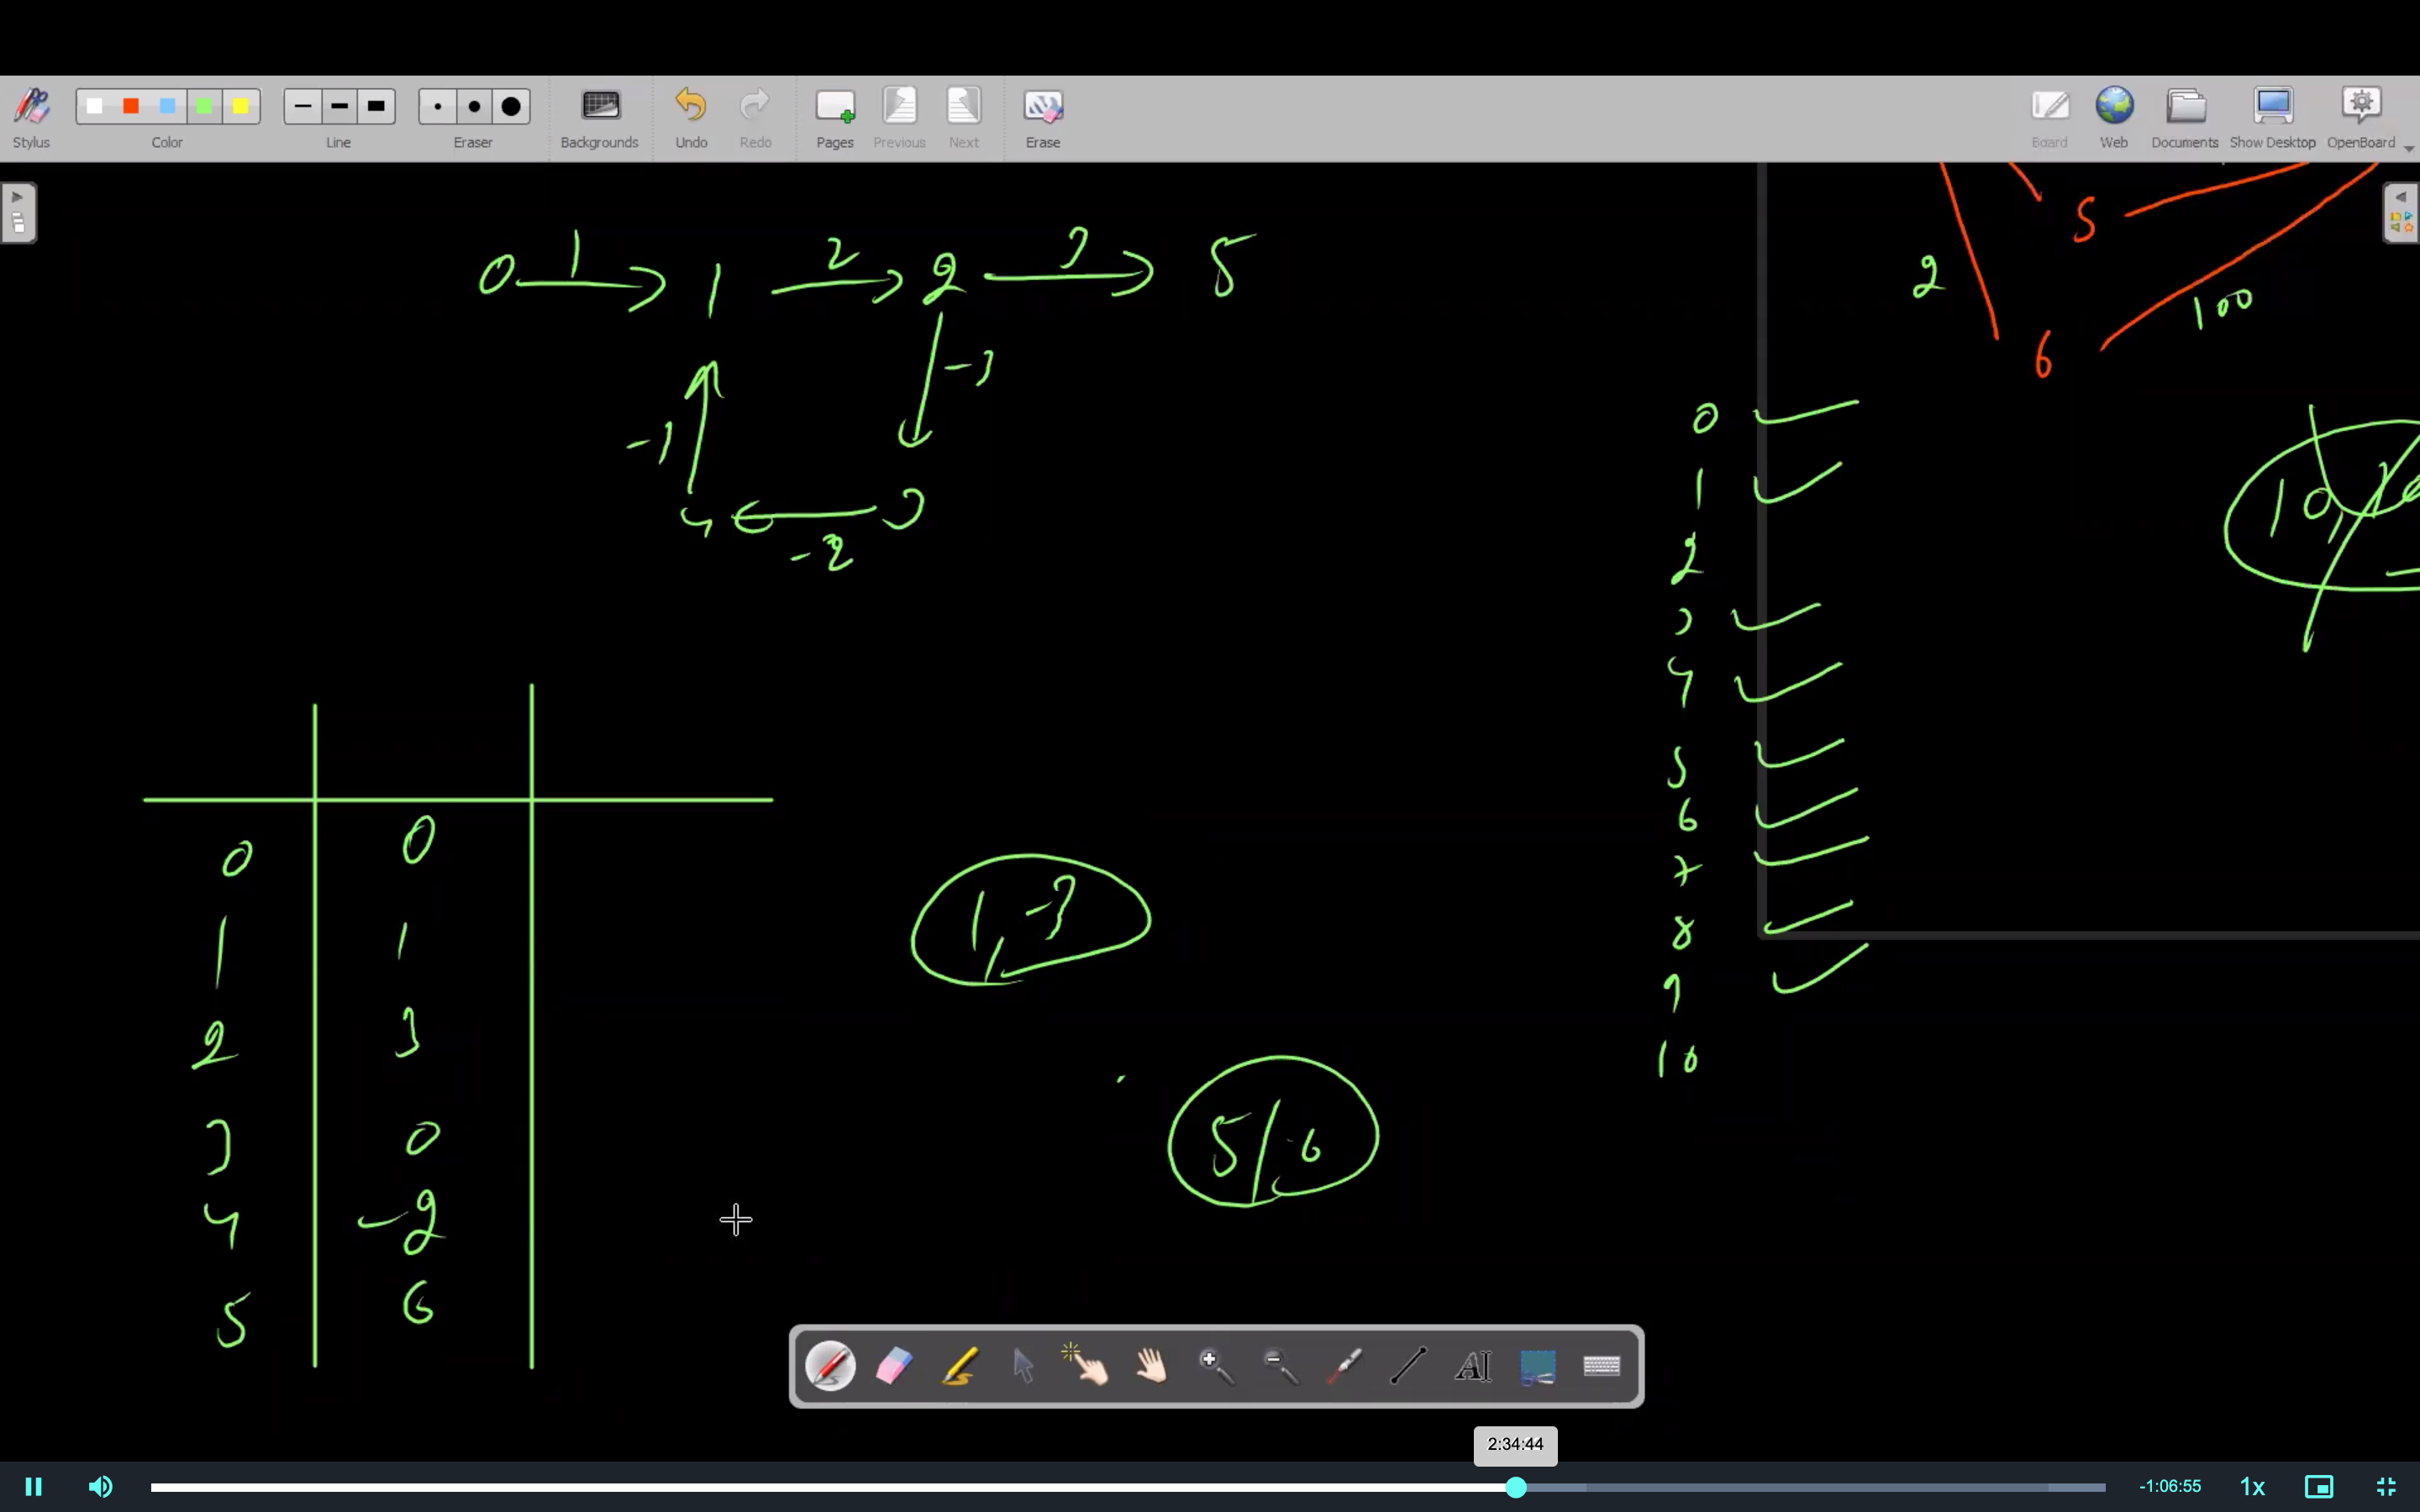 Stylus Color Line Eraser Backgrounds Undo Redo Pages Previous Next Erase Board Web Documents Show Desktop OpenBoard
0 1 1 2 2 3 5
-3
-1
4 3
-2
5
2
100
6
0
1
2
3
4
5
6
7
8
9
10
10,
0 0
1 1
2 3
3 0
4 -2
5 6
1, -3
5/-6
AI
2:34:44
-1:06:55 1x